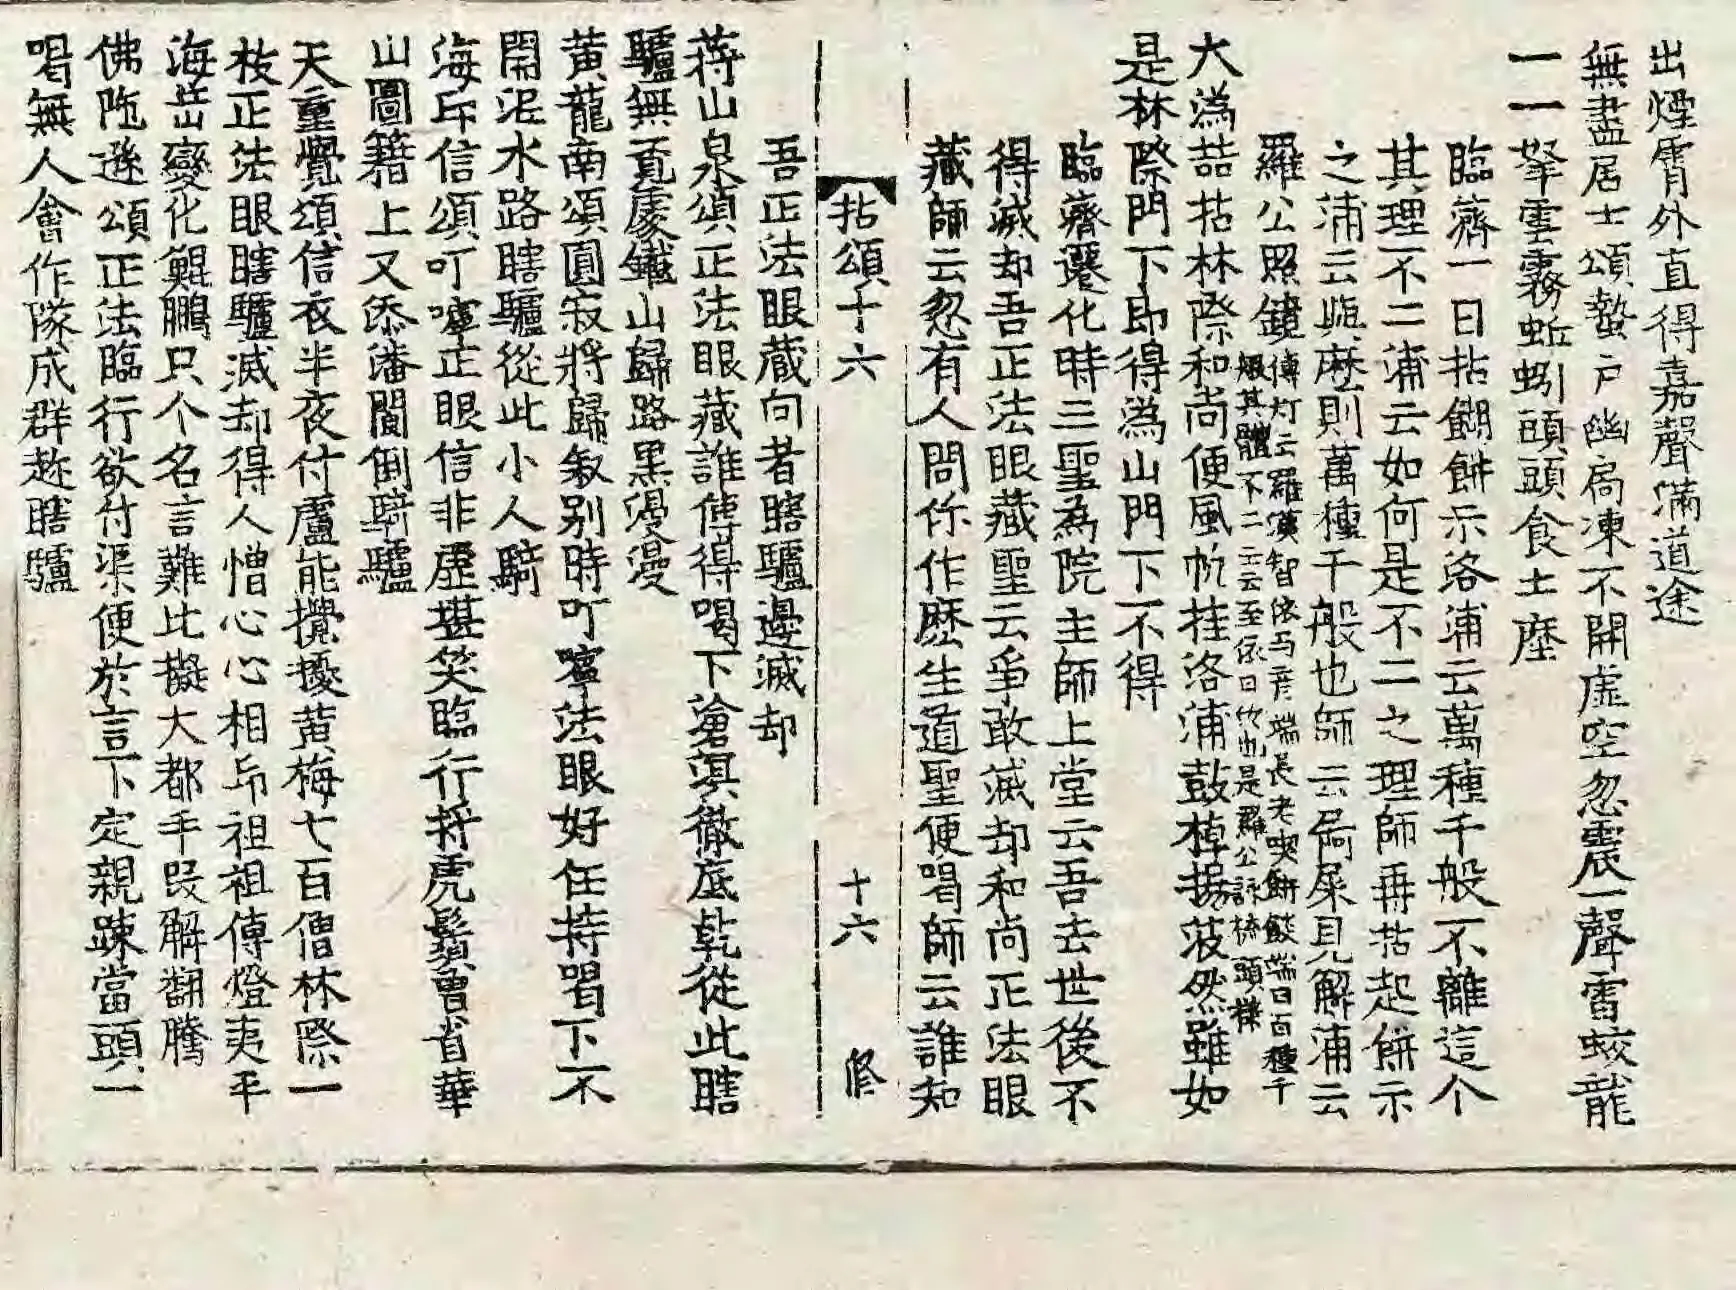 出煙霄外直得嘉聲滿道途
無盡居士頌蟄戶幽扃凍不開虛空忽震一聲雷蛟龍
一一拏雲霧蚯蚓頭頭食土麼
臨濟一日拈餬餅示洛浦云萬種千般不離這个
其理不二浦云如何是不二之理師再拈起餅示
之浦云與麼則萬種千般也師云屙屎見解浦云
羅公照鏡
傳灯云羅漢智依与彦端長老喫餅餤端曰百種千
般其體不二
大溈喆拈林際和尚便風帆挂洛浦鼓棹揚波然雖如
是林際門下卽得溈山門下不得
臨薺遷化時三聖為院主師上堂云吾去世後不
得滅却吾正法眼藏聖云爭敢滅却和尚正法眼
藏師云忽有人問你作麽生道聖便喝師云誰知
拈頌十六
十六
修
吾正法眼蔵向者瞎驢邊滅却
蒋山泉頌正法眼藏誰傳得喝下滄溟徹底乾從此瞎
驢無覓處鐵山歸路黒漫漫
黃龍南頌圓寂將歸敘别時叮嚀法眼好任持喝下不
開泥水路瞎驢從此小人騎
海印信頌叮嚀正眼信非虛堪笑臨行捋虎鬚曽省華
山圖籍上又添潘閬倒騎驢
天童覺頌信衣半夜付盧能攪擾黄梅七百僧林際一
枝正法眼瞎驢滅却得人憎心心相印祖祖傳燈夷平
海岳變化鯤鵬只个名言難比擬大都手段解翻騰
佛陁遜頌正法臨行欲付渠便於言下定親踈當頭一
喝無人會作隊成群趂瞎驢